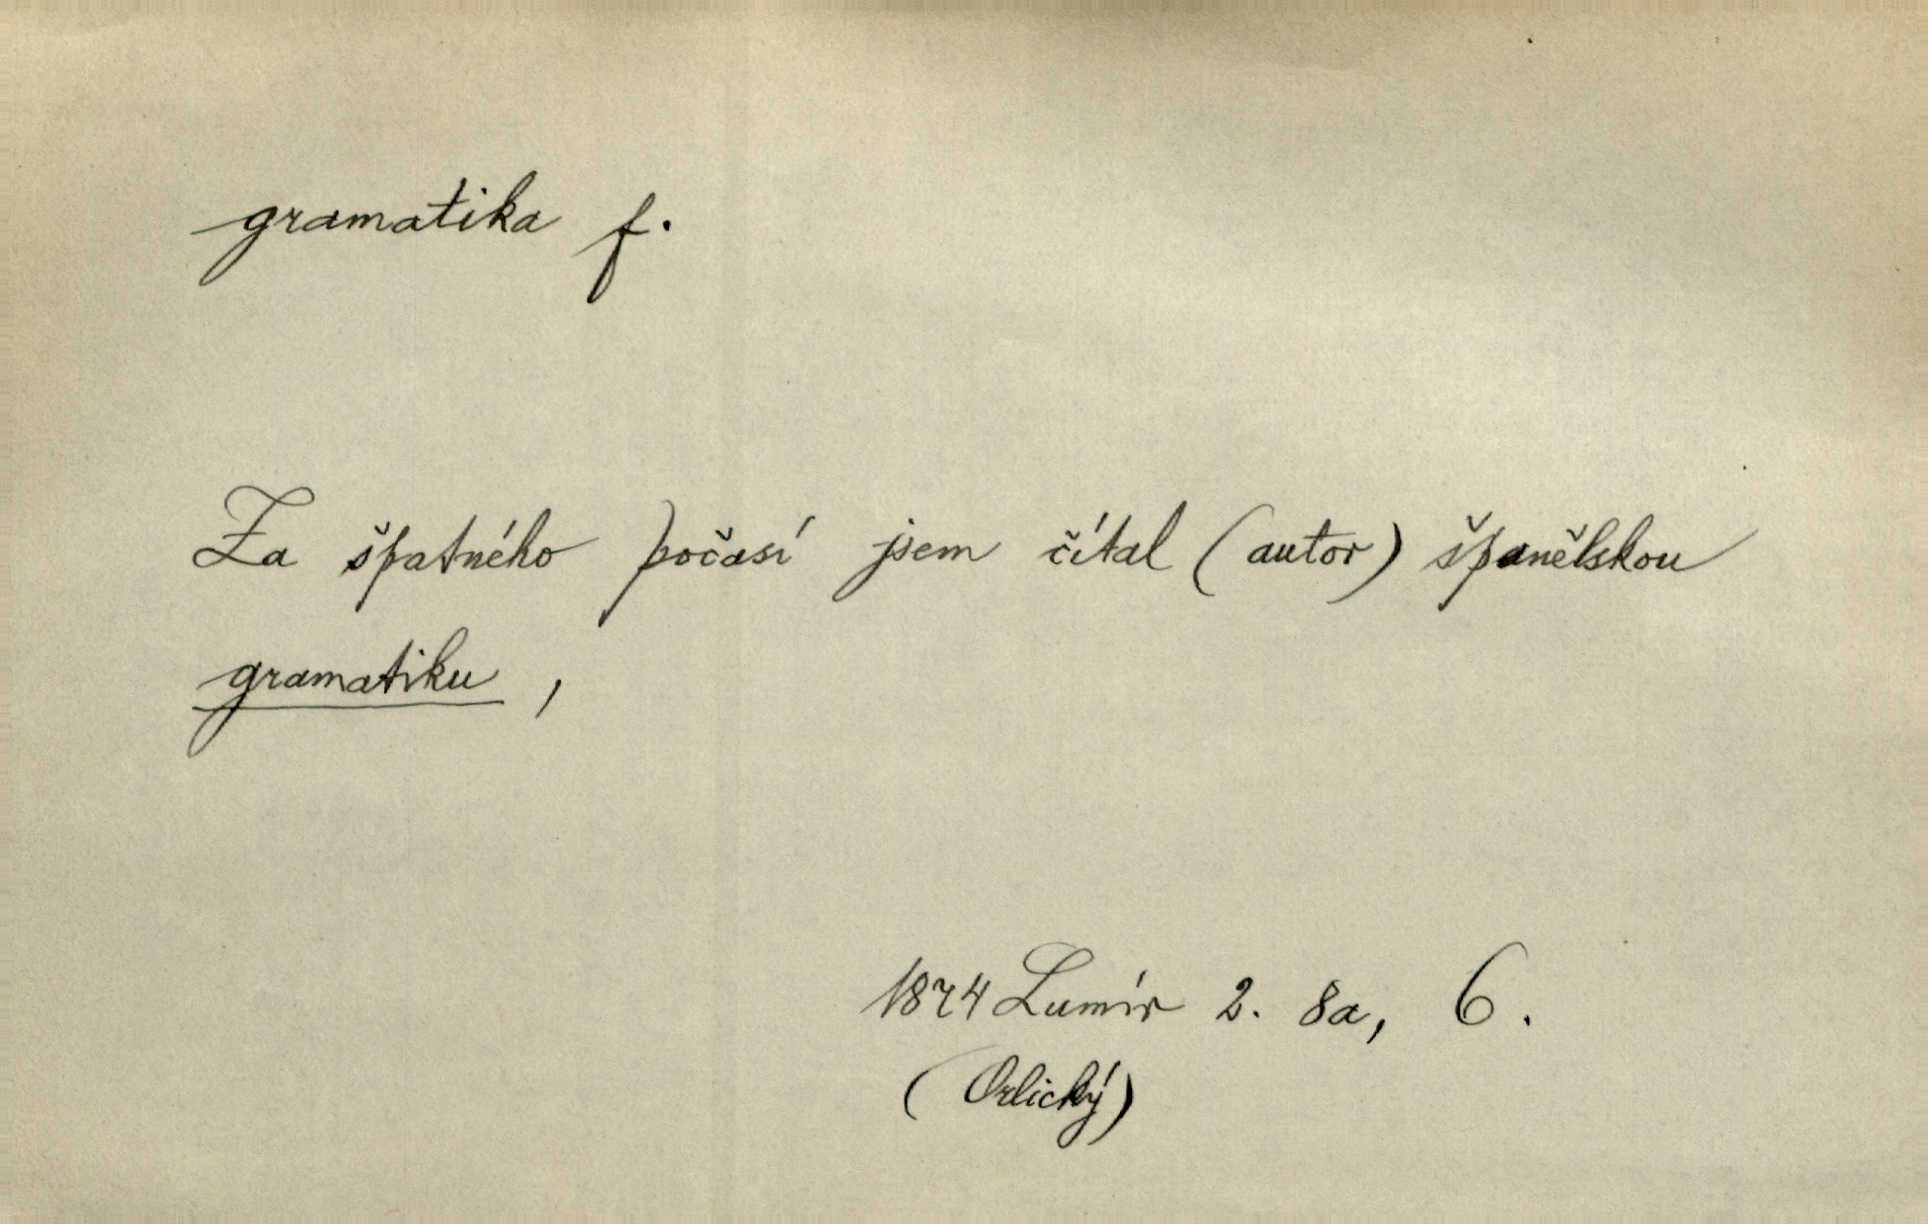 gramatika f.
Za špatného počasí jsem čítal (autor) španělskou
gramatiku,
1874 Lumír 2. 8a, 6.
(Orlický)